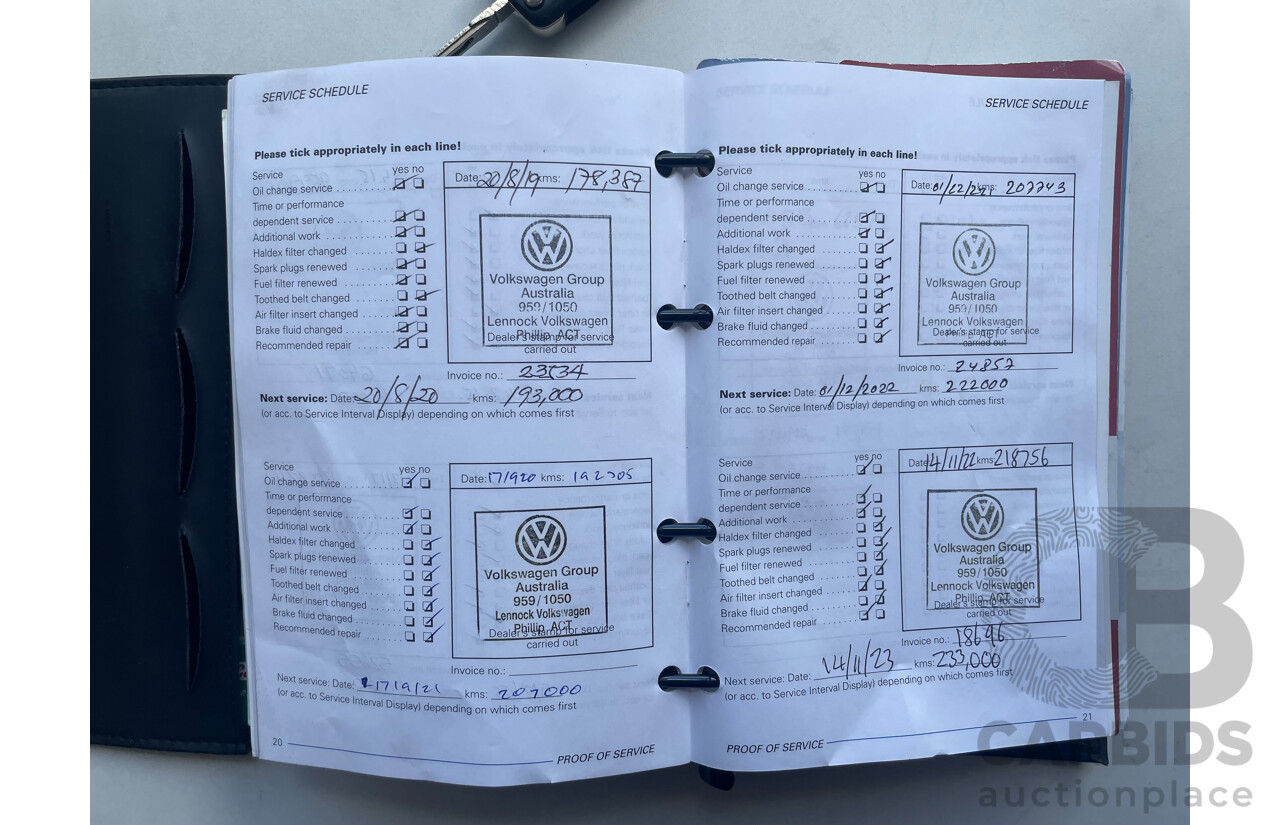 SERVICE SCHEDULE
Please tick appropriately in each line!
Service yes no
Oil change service
Time or performance
dependent service
Additional work
Haldex filter changed
Spark plugs renewed
Fuel filter renewed
Toothed belt changed
Air filter insert changed
Brake fluid changed
Recommended repair
Date: 20/8/19 kms: 178,387
Volkswagen Group
Australia
959/1050
Lennock Volkswagen
Phillip ACT
Dealer's stamp for service
carried out
Invoice no.:
Next service: Date: 20/8/20 kms: 193,000
(or acc. to Service Interval Display) depending on which comes first
Service yes no
Oil change service
Time or performance
dependent service
Additional work
Haldex filter changed
Spark plugs renewed
Fuel filter renewed
Toothed belt changed
Air filter insert changed
Brake fluid changed
Recommended repair
Date: 17/9/20 kms: 192705
Volkswagen Group
Australia
959/1050
Lennock Volkswagen
Phillip ACT
Dealer's stamp for service
carried out
Invoice no.:
Next service: Date: 17/9/21 kms: 207000
(or acc. to Service Interval Display) depending on which comes first
20
PROOF OF SERVICE
SERVICE SCHEDULE
Please tick appropriately in each line!
Service yes no
Oil change service
Time or performance
dependent service
Additional work
Haldex filter changed
Spark plugs renewed
Fuel filter renewed
Toothed belt changed
Air filter insert changed
Brake fluid changed
Recommended repair
Date: 01/12/2021 kms: 207743
Volkswagen Group
Australia
959/1050
Lennock Volkswagen
Phillip ACT
Dealer's stamp for service
carried out
Invoice no.: 24857
Next service: Date: 01/12/2022 kms: 222000
(or acc. to Service Interval Display) depending on which comes first
Service yes no
Oil change service
Time or performance
dependent service
Additional work
Haldex filter changed
Spark plugs renewed
Fuel filter renewed
Toothed belt changed
Air filter insert changed
Brake fluid changed
Recommended repair
Date: 14/11/22 kms: 218756
Volkswagen Group
Australia
959/1050
Lennock Volkswagen
Phillip ACT
Dealer's stamp for service
carried out
Invoice no.: 18646
Next service: Date: 14/11/23 kms: 233,000
(or acc. to Service Interval Display) depending on which comes first
21
PROOF OF SERVICE
CARBIDS
auctionplace